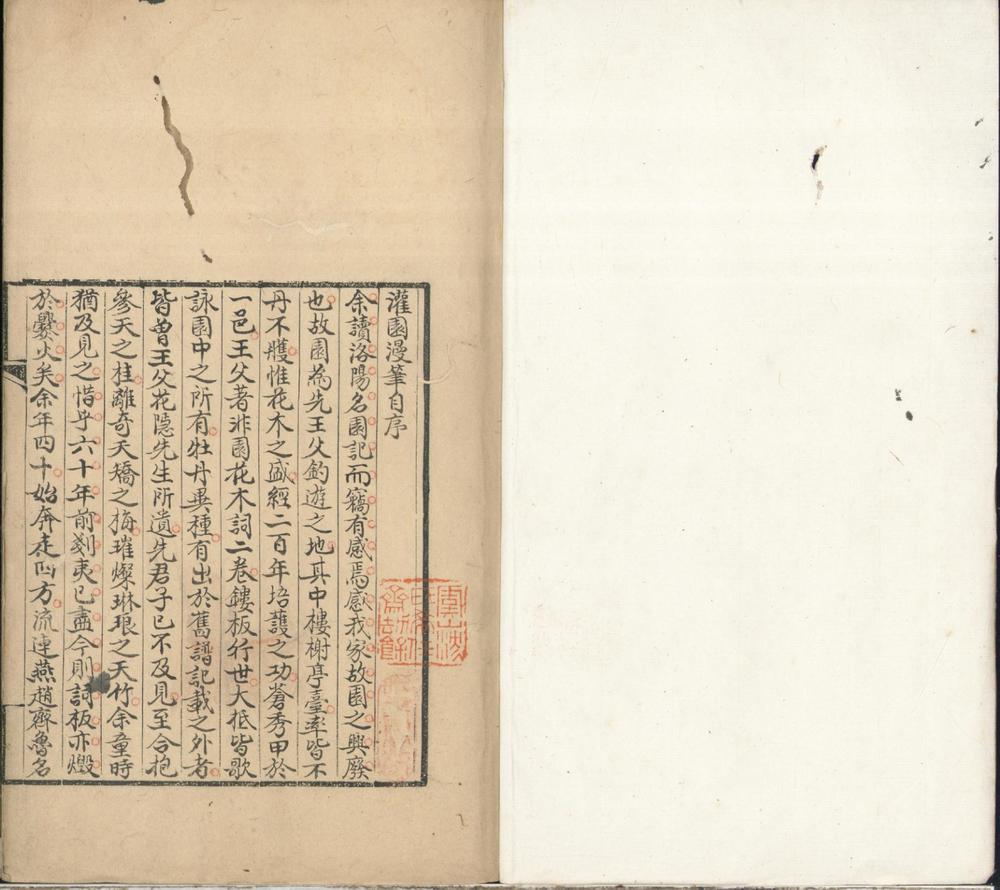 灌園漫筆自序
余讀洛陽名園記而竊有感焉感我家故園之興廢
也故園為先王父釣遊之地其中樓榭亭臺率皆不
丹不雘惟花木之盛經二百年培護之功蒼秀甲於
一邑王父著非園花木詞二卷鏤板行世大抵皆歌
詠園中之所有牡丹異種有出於舊譜記載之外者
皆曾王父花隱先生所遺先君子已不及見至合抱
參天之桂離奇夭矯之梅璀燦琳琅之天竹余童時
猶及見之惜乎六十年前剗夷已盡今則詞板亦燬
於爨火矣余年四十始奔走四方流連燕趙齊魯名